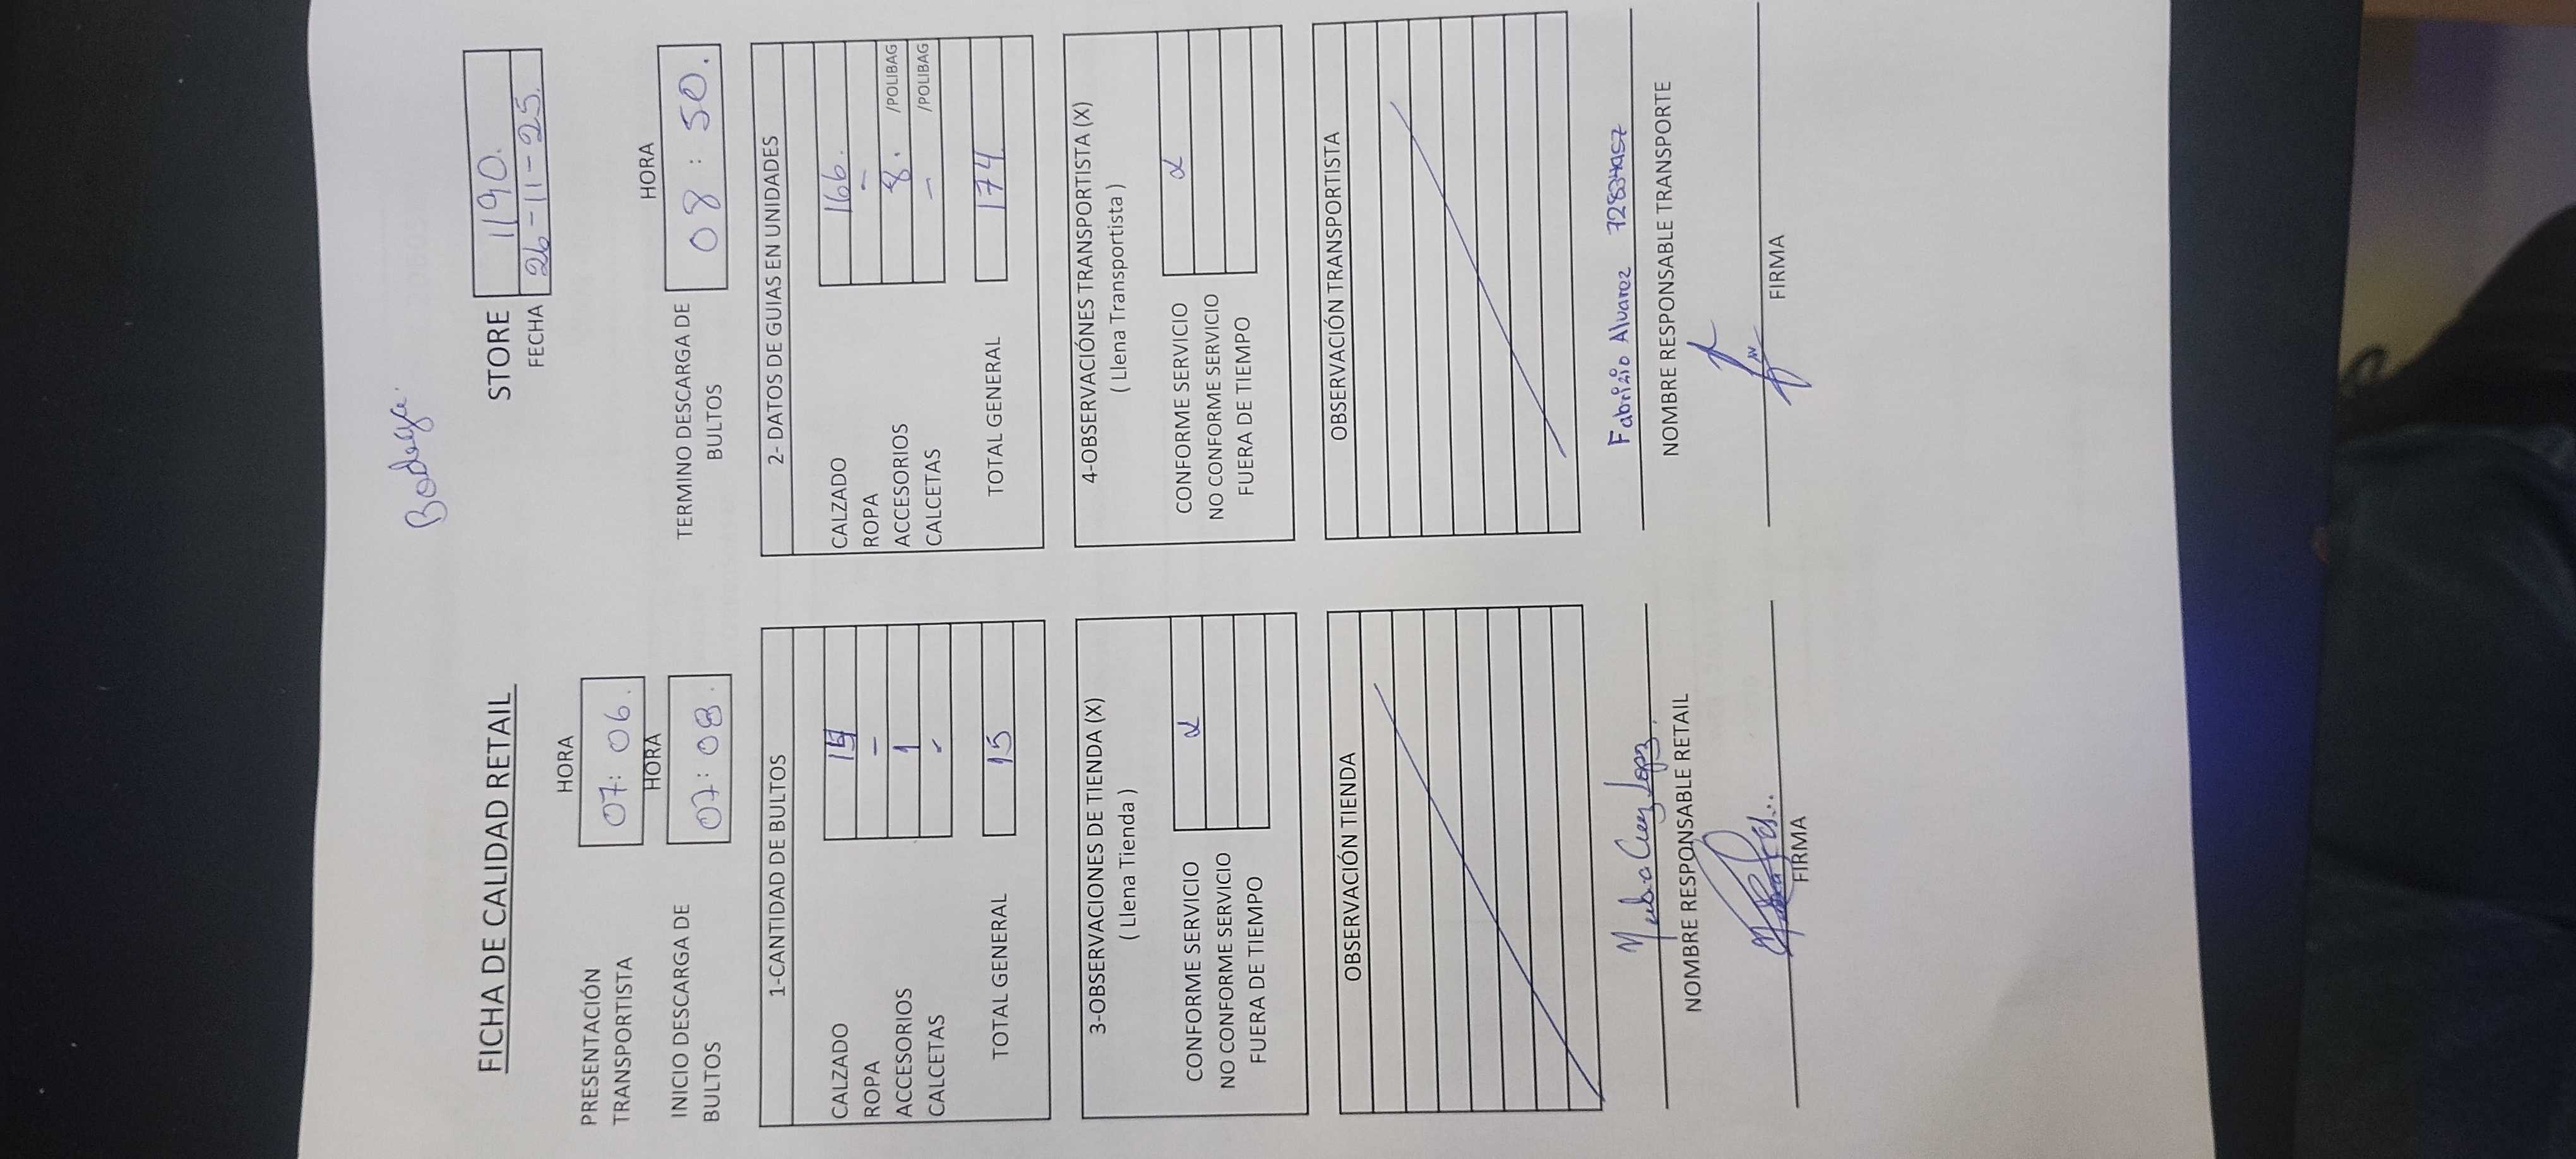 Bodega.
FICHA DE CALIDAD RETAIL
STORE 1190.
FECHA 26-11-25.
HORA
PRESENTACIÓN TRANSPORTISTA 07:06.
HORA
HORA
INICIO DESCARGA DE BULTOS 07:08.
TERMINO DESCARGA DE BULTOS 08:50.
1-CANTIDAD DE BULTOS
CALZADO 14
ROPA -
ACCESORIOS 1
CALCETAS -
TOTAL GENERAL 15
2- DATOS DE GUIAS EN UNIDADES
CALZADO 166.
ROPA -
ACCESORIOS 8. /POLIBAG
CALCETAS - /POLIBAG
TOTAL GENERAL 174
3-OBSERVACIONES DE TIENDA (X)
( Llena Tienda )
CONFORME SERVICIO x
NO CONFORME SERVICIO
FUERA DE TIEMPO
4-OBSERVACIÓNES TRANSPORTISTA (X)
( Llena Transportista )
CONFORME SERVICIO x
NO CONFORME SERVICIO
FUERA DE TIEMPO
OBSERVACIÓN TIENDA
OBSERVACIÓN TRANSPORTISTA
NOMBRE RESPONSABLE RETAIL
FIRMA
Fabrizio Alvarez
NOMBRE RESPONSABLE TRANSPORTE
FIRMA